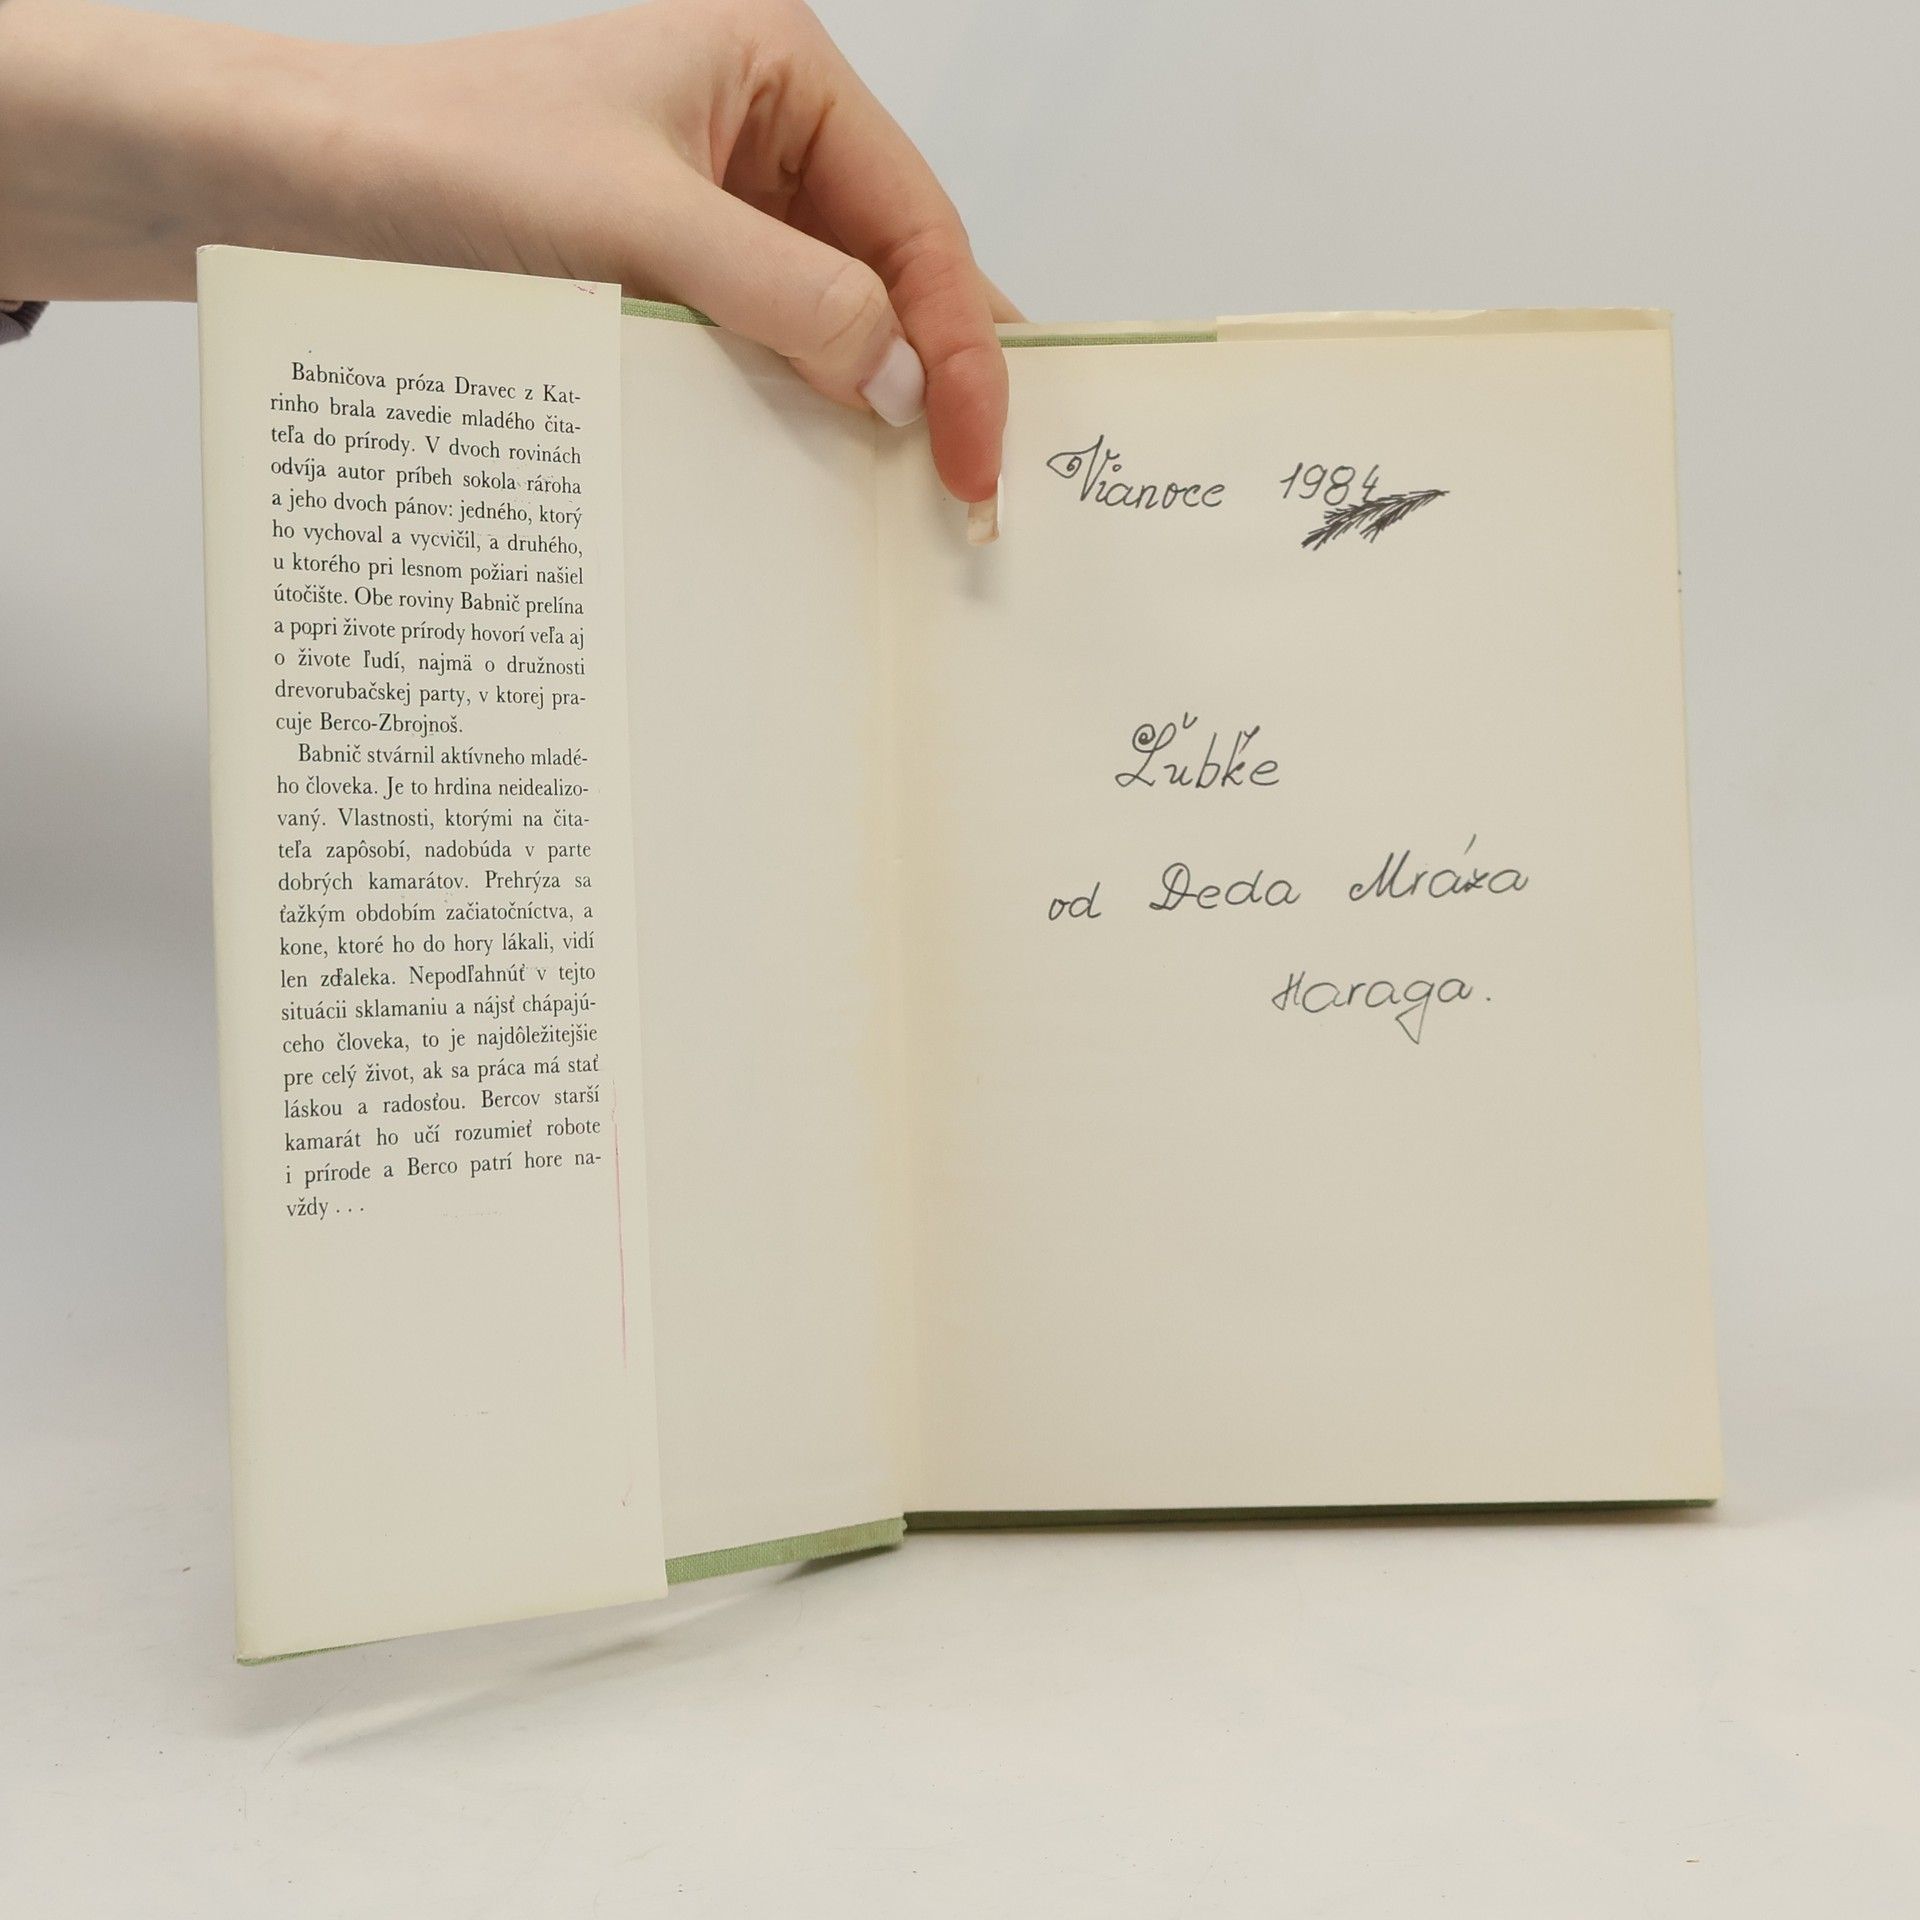 Babničova próza Dravec z Kat-
rinho brala zavedie mladého čita-
teľa do prírody. V dvoch rovinách
odvíja autor príbeh sokola rároha
a jeho dvoch pánov: jedného, ktorý
ho vychoval a vycvičil, a druhého,
u ktorého pri lesnom požiari našiel
útočište. Obe roviny Babnič prelína
a popri živote prírody hovorí veľa aj
o živote ľudí, najmä o družnosti
drevorubačskej party, v ktorej pra-
cuje Berco-Zbrojnoš.
Babnič stvárnil aktívneho mladé-
ho človeka. Je to hrdina neidealizo-
vaný. Vlastnosti, ktorými na čita-
teľa zapôsobí, nadobúda v parte
dobrých kamarátov. Prehrýza sa
ťažkým obdobím začiatočníctva, a
kone, ktoré ho do hory lákali, vidí
len zďaleka. Nepodľahnúť v tejto
situácii sklamaniu a nájsť chápajú-
ceho človeka, to je najdôležitejšie
pre celý život, ak sa práca má stať
láskou a radosťou. Bercov starší
kamarát ho učí rozumieť robote
i prírode a Berco patrí hore na-
vždy . . .
Vianoce 1984
Ľubke
od Deda Mráza
Haraga.